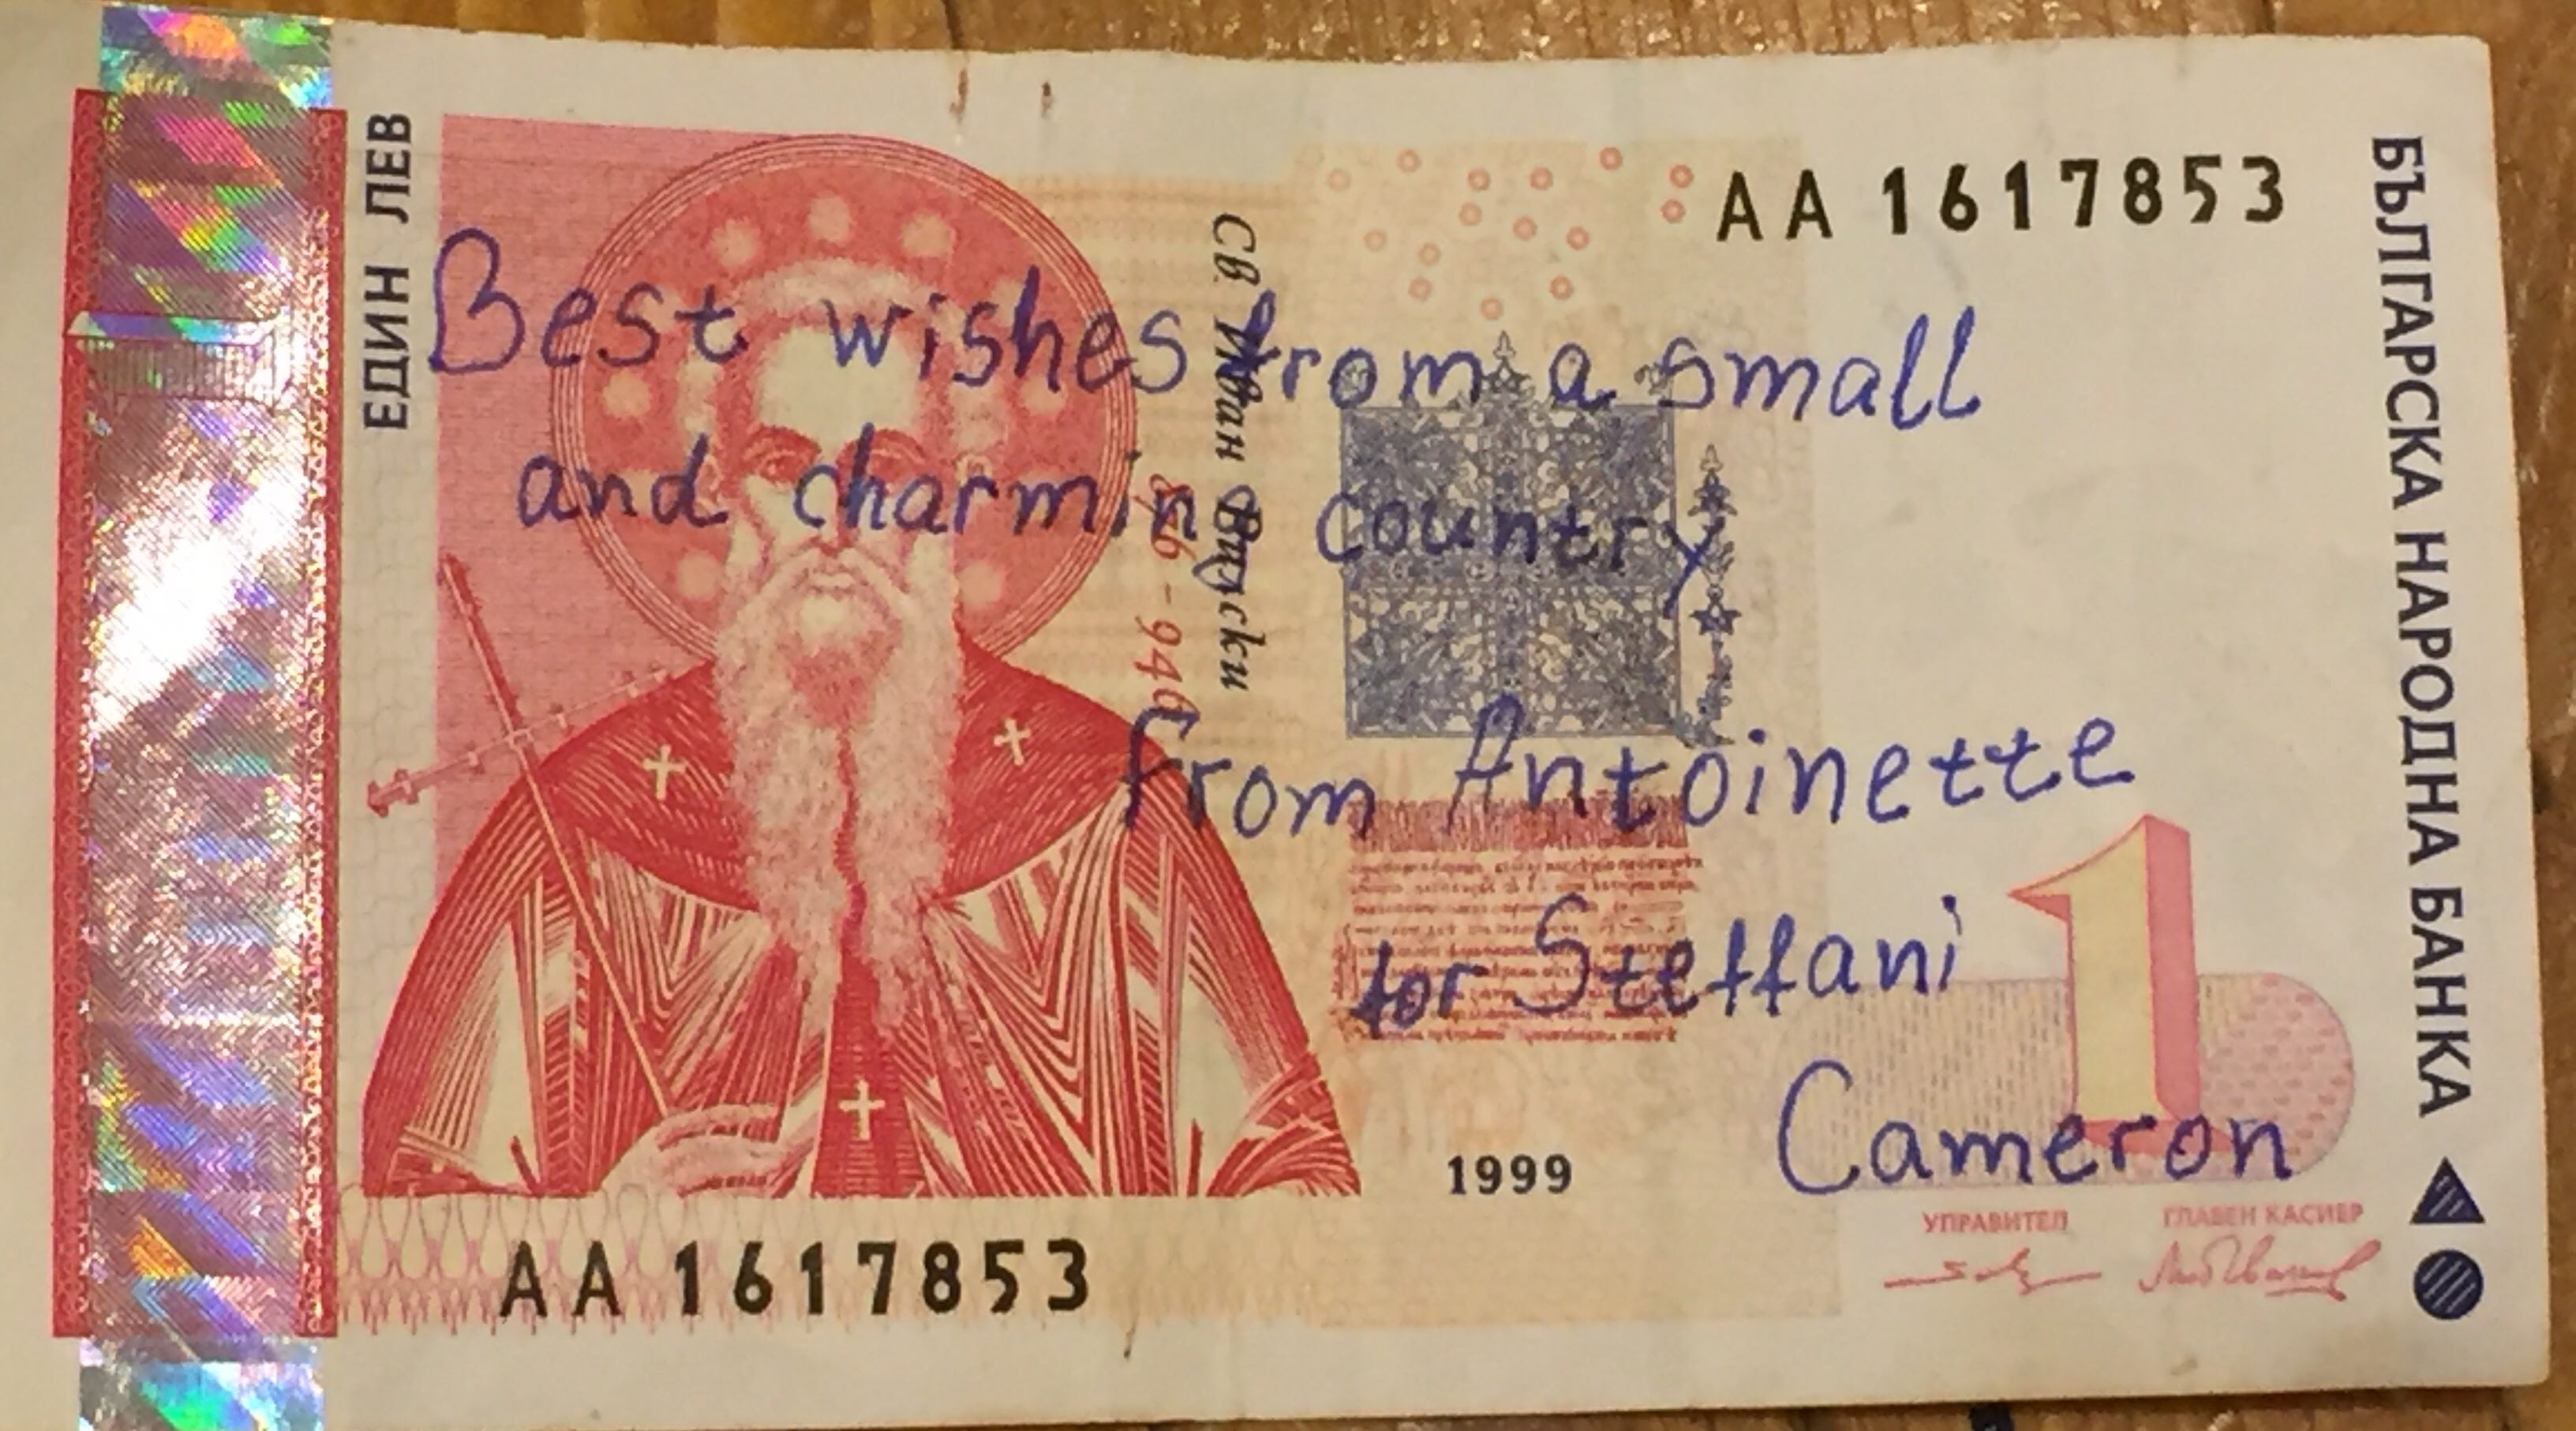 ЕДИН ЛЕВ
АА 1617853
БЪЛГАРСКА НАРОДНА БАНКА
Св. Иван Рилски
876 - 946
Best wishes from a small
and charming country
from Antoinette
for Steffani
Cameron
1
1999
УПРАВИТЕЛ
ГЛАВЕН КАСИЕР
АА 1617853